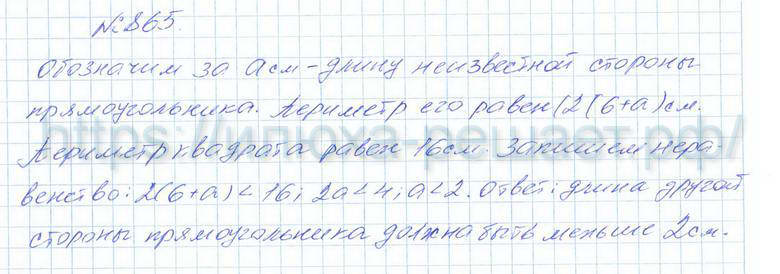 № 865.
Обозначим за a см – длину неизвестной стороны
прямоугольника. Периметр его равен (2(6+a) см.
https://илюха-решает.рф/
Периметр квадрата равен 16 см. Запишем нера-
венство: 2(6+a) < 16; 2a < 4; a < 2. Ответ: длина другой
стороны прямоугольника должна быть меньше 2 см.